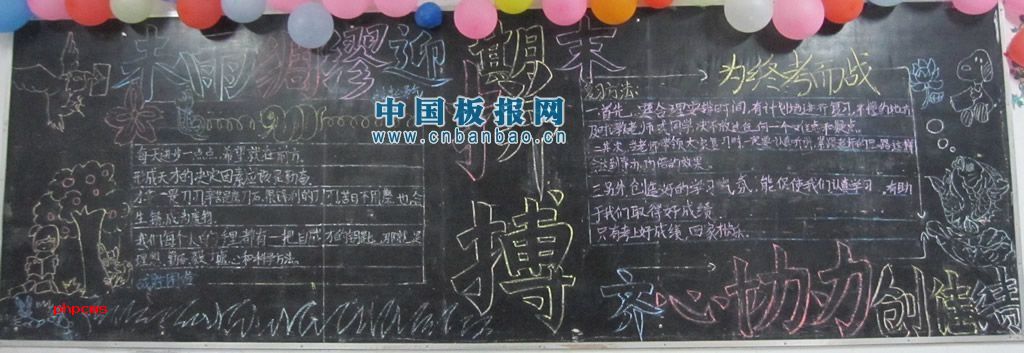 未雨绸缪迎期末
拼搏
中国板报网
www.cnbanbao.cn
每天进步一点点,希望就在前方。
形成天才的决定因素应该是勤奋。
生锈成为废物
我们每个人手里都有一把自成才的钥匙,那就是
理想、勤奋、毅力、虚心和科学方法。
为终考而战
复习方法:
一.首先,要合理安排时间,有计划地进行复习,不懂的地方
及时请教老师或同学,决不放过任何一个疑点和难点。
达到事功倍的效果。
三.另外创造好的学习气氛,能促使我们认真学习,有助
于我们取得好成绩
只有考上好成绩,回家快乐。
齐心协力创佳绩
phpcms